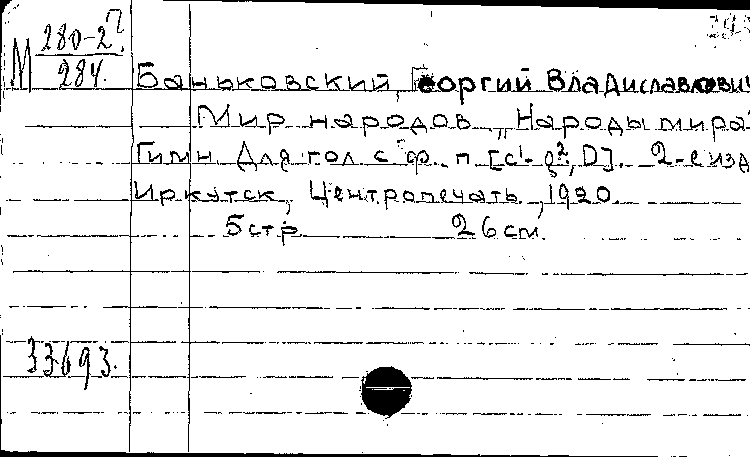 М 280-2
284.
Баньковский, Георгий Владиславович
Мир народов „Народы мира"
Гимн. Для гол с ф. п [c¹-g²; D]. 2-е изд
Иркутск, Центропечать, 1920.
5 стр 26 см.
33693.